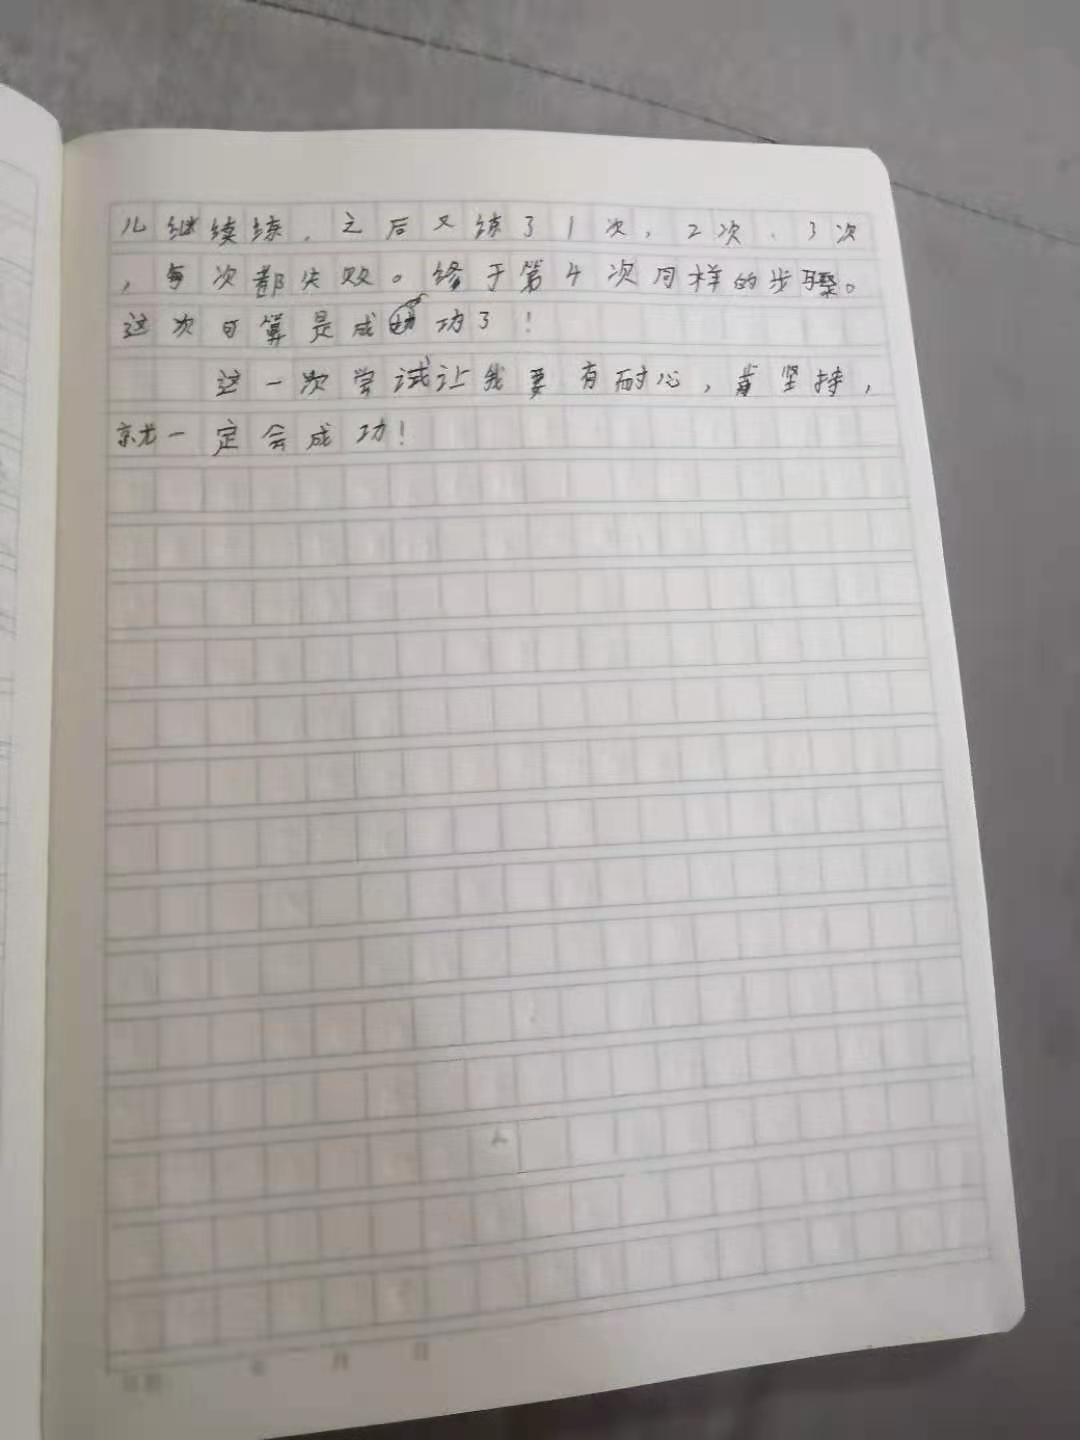 儿继续练，之后又练了1次，2次、3次
，每次都失败。终于第4次同样的步骤。
这次可算是成功了！
这一次尝试让我要有耐心，肯坚持，
就一定会成功！
年 月 日